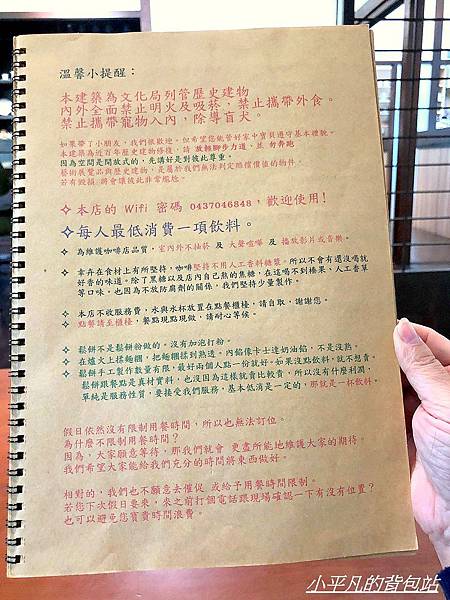 溫馨小提醒：
本建築為文化局列管歷史建物
內外全面禁止明火及吸菸，禁止攜帶外食。
禁止攜帶寵物入內，除導盲犬。
如果帶了小朋友，我們很歡迎。但希望您能管好家中寶貝遵守基本禮貌。
本建築為近百年歷史建物修復，請 放輕腳步力道，並 勿奔跑
因為空間是開放式的，先講好是對彼此尊重。
藝術展覽品與歷史建物，是屬於我們無法判定賠償價值的物件。
若有毀損 將會讓彼此非常尷尬。
✧ 本店的 Wifi 密碼 0437046848，歡迎使用！
✧ 每人最低消費一項飲料。
✧ 為維護咖啡店品質，室內外不抽菸 及 大聲喧嘩 及 播放影片或音樂。
✧ 幸卉在食材上有所堅持，咖啡堅持不用人工香料糖漿。所以不會有還沒喝就
好香的味道。除了黑糖以及店內自己熬的焦糖，在這喝不到榛果、人工香草
等口味，也因為不放防腐劑的關係，我們堅持少量製作。
✧ 本店不收服務費，水與水杯放置在點餐櫃檯，請自取，謝謝您。
✧ 點餐請至櫃檯，餐點現點現做，請耐心等候。
✧ 鬆餅不是鬆餅粉做的。沒有加泡打粉。
✧ 在爐火上揉麵糰，把麵糰揉到熟透。內餡像卡士達奶油餡，不是沒熟。
✧ 鬆餅手工製作數量有限，最好兩個人點一份就好。如果沒點飲料，就不想賣。
鬆餅跟餐點是真材實料，也沒因為這樣就賣比較貴，所以沒有什麼利潤，
單純是服務性質，要接受我們服務，基本低消是一定的，那就是一杯飲料。
假日依然沒有限制用餐時間，所以也無法訂位。
為什麼不限制用餐時間？
因為，大家願意等待，那我們就會 更盡所能地維護大家的期待。
我們希望大家能給我們充分的時間將東西做好。
相對的，我們也不願意去催促 或給予用餐時間限制。
若您下次假日要來，來之前打個電話跟現場確認一下有沒有位置？
也可以避免您寶貴時間浪費。
小平凡的背包站